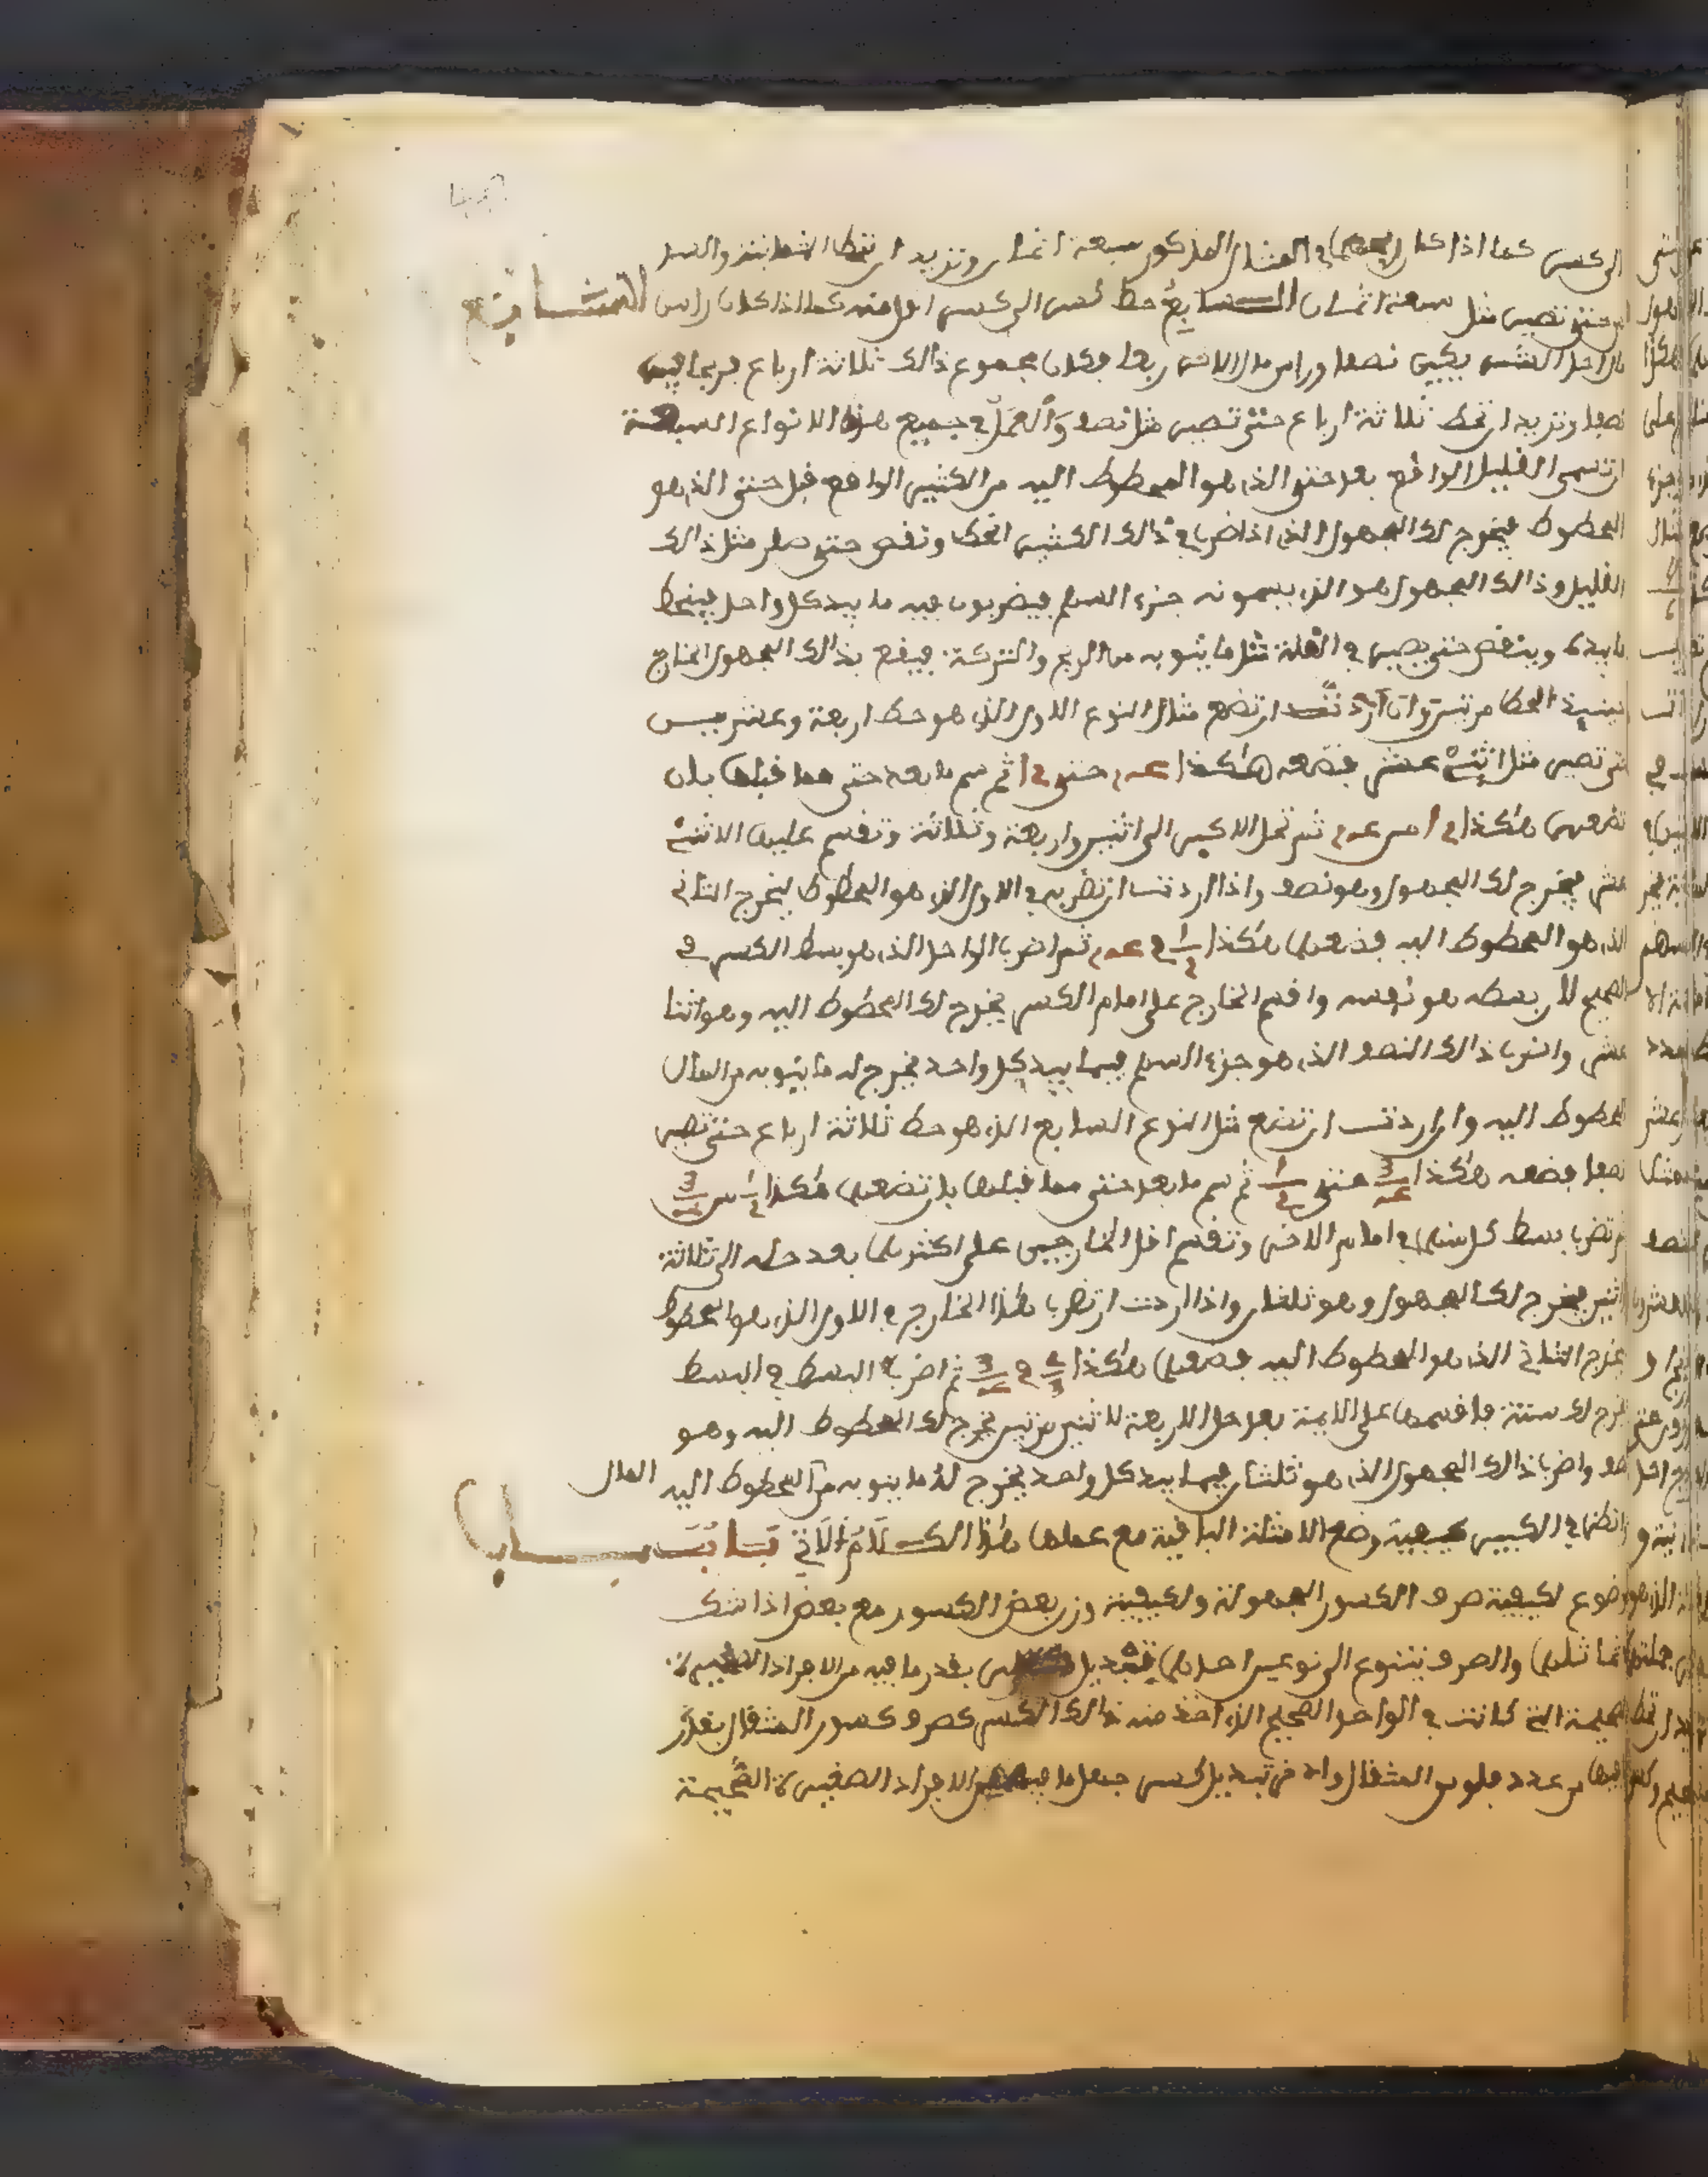 الى كسر كما اذا كان في المثال المذكور سبعة اثمان وتريد ان تحط الثمانية والعشر
حتى تصير مثل سبعة اثمان السابع حط كسر الى كسر اقل منه كما اذا كان راس
مال احد الشريكين نصفا وراس مال الاخر ربعا فكان مجموع ذالك ثلاثة ارباع فربحا فيه
نصفا وتريد ان تحط ثلاثة ارباع حتى تصير مثل نصف والعمل في جميع هذه الانواع السبعة
ان تسمي القليل الواقع بعد حتى الذي هو المحطوط اليه من الكثير الواقع قبل حتى الذي هو
المحطوط فيخرج لك المجهول الذي اذا ضرب في ذالك الكثير انحط ونقص حتى صار مثل ذالك
القليل وذالك المجهول هو الذي يسمونه جزء السهم فيضربون فيه ما بيد كل واحد فينحط
ما بيده وينقص حتى يصير في القلة مثل ما ينوبه من الربح والتركة فيقع بذالك المجهول الخارج
المحط مرتين وان اردت ان تضع مثال النوع الاول الذي هو حط اربعة وعشرين
حتى تصير مثل اثني عشر فضعه هكذا ٢٤ حتى ١٢ ثم سم ما بعد حتى مما قبلها بان
تضعهن هكذا ١٢ من ٢٤ ثم تحل الاكبر الى اثنين واربعة وثلاثة وتقسم عليها الاثني
عشر فيخرج لك المجهول وهو نصف واذا اردت ان تضربه في الاول الذي هو المحطوط ليخرج الثاني
الذي هو المحطوط اليه فضعهما هكذا ١/٢ في ٢٤ ثم اضرب الواحد الذي هو بسط الكسر في
الصحيح لان بسطه هو نفسه واقسم الخارج على امام الكسر يخرج لك المحطوط اليه وهو اثنا
عشر واضرب ذالك النصف الذي هو جزء السهم فيما بيد كل واحد يخرج له ما ينوبه من المال
المحطوط اليه وان اردت ان تضع مثل النوع السابع الذي هو حط ثلاثة ارباع حتى تصير
نصفا فضعه هكذا ٣/٤ حتى ١/٢ ثم سم ما بعد حتى مما قبلها بان تضعهما هكذا ١/٢ من ٣/٤
ثم تضرب بسط كل منهما في امام الاخر وتقسم اقل الخارجين على اكثرهما بعد حله الى ثلاثة
واثنين فيخرج لك المجهول وهو ثلثان واذا اردت ان تضرب هذا الخارج في الاول الذي هو المحطوط
ليخرج الثاني الذي هو المحطوط اليه فضعهما هكذا ٢/٣ في ٣/٤ ثم اضرب البسط في البسط
يخرج لك ستة فاقسمها على الايمة بعد حل الاربعة لاثنين مرتين يخرج لك المحطوط اليه وهو
نصف واضرب ذالك المجهول الذي هو ثلثان فيما بيد كل واحد يخرج له ما ينوبه من المحطوط اليه المال
وانظر في الكبير كيفية وضع الامثلة الباقية مع عملها هذا الكلام الاتي باب
موضوع لكيفية صرف الكسور المجهولة ولكيفية وزن بعض الكسور مع بعض اذا شك
في تماثلهما والصرف يتنوع الى نوعين احدهما تبديل كسر بقدر ما فيه من الافراد الصغيرة
الصحيحة التي كانت في الواحد الصحيح الذي اخذ منه ذالك الكسر كصرف كسور المثقال بقدر
ما فيها من عدد فلوس المثقال والاخر تبديل كسر جهل ما فيه من الافراد الصغيرة الصحيحة